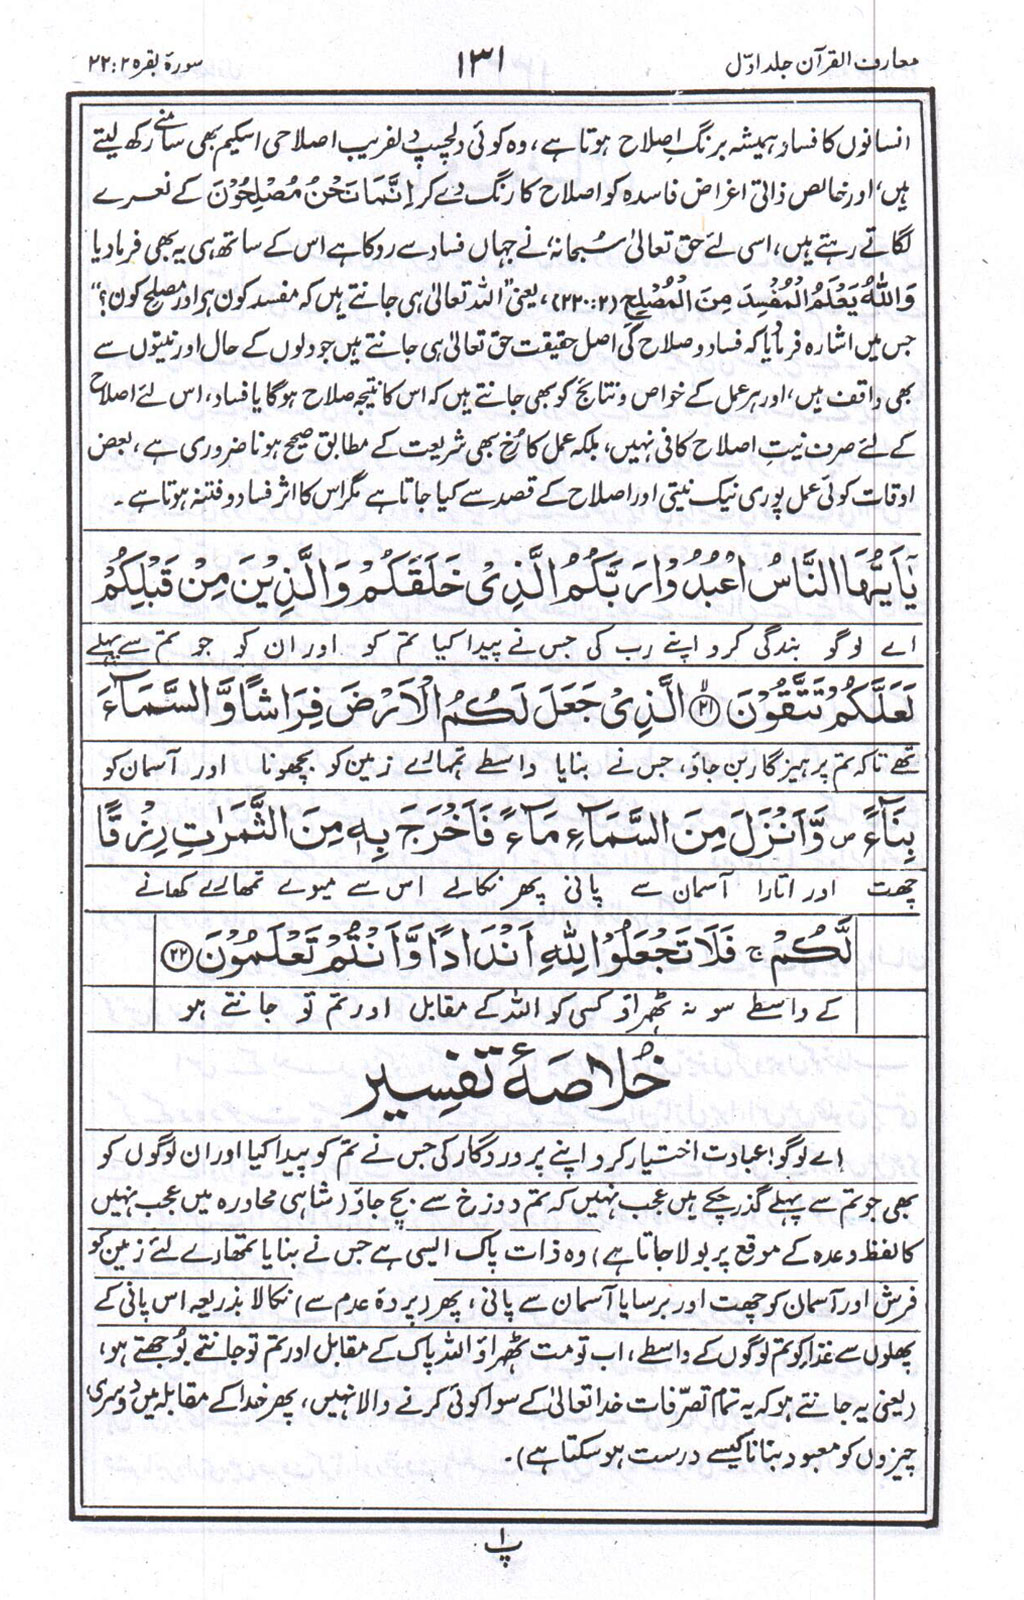 معارف القرآن جلد اوّل
۱۳۱
سورۂ بقرہ ۲ : ۲۲
انسانوں کا فساد ہمیشہ برنگِ اصلاح ہوتا ہے، وہ کوئی دلچسپ دلفریب اصلاحی اسکیم بھی سامنے رکھ لیتے
ہیں، اور خالص ذاتی اغراض فاسدہ کو اصلاح کا رنگ دے کر اِنَّمَا نَحْنُ مُصْلِحُوْنَ کے نعرے
لگاتے رہتے ہیں، اسی لئے حق تعالیٰ سُبحانہٗ نے جہاں فساد سے روکا ہے اس کے ساتھ ہی یہ بھی فرمادیا
وَاللّٰهُ يَعْلَمُ الْمُفْسِدَ مِنَ الْمُصْلِحِ (۲:۲۲۰)، یعنی "اللہ تعالیٰ ہی جانتے ہیں کہ مفسد کون ہر اور مصلح کون؟"
جس میں اشارہ فرمادیا کہ فساد و صلاح کی اصل حقیقت حق تعالیٰ ہی جانتے ہیں جو دلوں کے حال اور نیتوں سے
بھی واقف ہیں، اور ہر عمل کے خواص و نتائج کو بھی جانتے ہیں کہ اس کا نتیجہ صلاح ہوگا یا فساد، اس لئے اصلاح
کے لئے صرف نیتِ اصلاح کافی نہیں، بلکہ عمل کا رُخ بھی شریعت کے مطابق صحیح ہونا ضروری ہے، بعض
اوقات کوئی عمل پوری نیک نیتی اور اصلاح کے قصد سے کیا جاتا ہے مگر اس کا اثر فساد و فتنہ ہوتا ہے ۔
يٰٓاَيُّهَا النَّاسُ اعْبُدُوْا رَبَّكُمُ الَّذِىْ خَلَقَكُمْ وَالَّذِيْنَ مِنْ قَبْلِكُمْ
اے لوگو بندگی کرو اپنے رب کی جس نے پیدا کیا تم کو اور ان کو جو تم سے پہلے
لَعَلَّكُمْ تَتَّقُوْنَ ﴿۲۱﴾ الَّذِىْ جَعَلَ لَكُمُ الْاَرْضَ فِرَاشًا وَّالسَّمَآءَ
تھے تاکہ تم پرہیزگار بن جاؤ، جس نے بنایا واسطے تمہارے زمین کو بچھونا اور آسمان کو
بِنَآءً ص وَّاَنْزَلَ مِنَ السَّمَآءِ مَآءً فَاَخْرَجَ بِهٖ مِنَ الثَّمَرٰتِ رِزْقًا
چھت اور اتارا آسمان سے پانی پھر نکالے اس سے میوے تمھارے کھانے
لَّكُمْ ج فَلَا تَجْعَلُوْا لِلّٰهِ اَنْدَادًا وَّاَنْتُمْ تَعْلَمُوْنَ ﴿۲۲﴾
کے واسطے سو نہ ٹھہراؤ کسی کو اللہ کے مقابل اور تم تو جانتے ہو
خُلاصۂ تفسیر
اے لوگو! عبادت اختیار کرو اپنے پروردگار کی جس نے تم کو پیدا کیا اور ان لوگوں کو
بھی جو تم سے پہلے گذر چکے ہیں عجب نہیں کہ تم دوزخ سے بچ جاؤ (شاہی محاورہ میں عجب نہیں
کا لفظ وعدہ کے موقع پر بولا جاتا ہے) وہ ذات پاک ایسی ہے جس نے بنایا تمھارے لئے زمین کو
فرش اور آسمان کو چھت اور برسایا آسمان سے پانی، پھر (پردۂ عدم سے) نکالا بذریعہ اس پانی کے
پھلوں سے غذا کو تم لوگوں کے واسطے، اب تو مت ٹھہراؤ اللہ پاک کے مقابل اور تم تو جانتے بُوجھتے ہو،
(یعنی یہ جانتے ہو کہ یہ تمام تصرّفات خدا تعالیٰ کے سوا کوئی کرنے والا نہیں، پھر خدا کے مقابلہ میں دوسری
چیزوں کو معبود بنانا کیسے درست ہوسکتا ہے) ۔